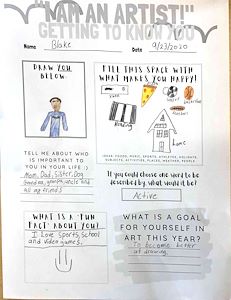 "I AM AN ARTIST!"
GETTING TO KNOW YOU
Name Blake Date 9/23/2020
DRAW YOU
BELOW.
FILL THIS SPACE WITH
WHAT MAKES YOU HAPPY!
Reading
home
TELL ME ABOUT WHO
IS IMPORTANT TO
YOU IN YOUR LIFE :)
Mom, Dad, Sister, Dog
Grandma, grandpa, uncle and
all my friends
If you could choose one word to be
described by, what would it be?
Active
WHAT IS A "FUN
FACT" ABOUT YOU?
I love sports, school
and video games.
WHAT IS A GOAL
FOR YOURSELF IN
ART THIS YEAR?
To become better
at drawing